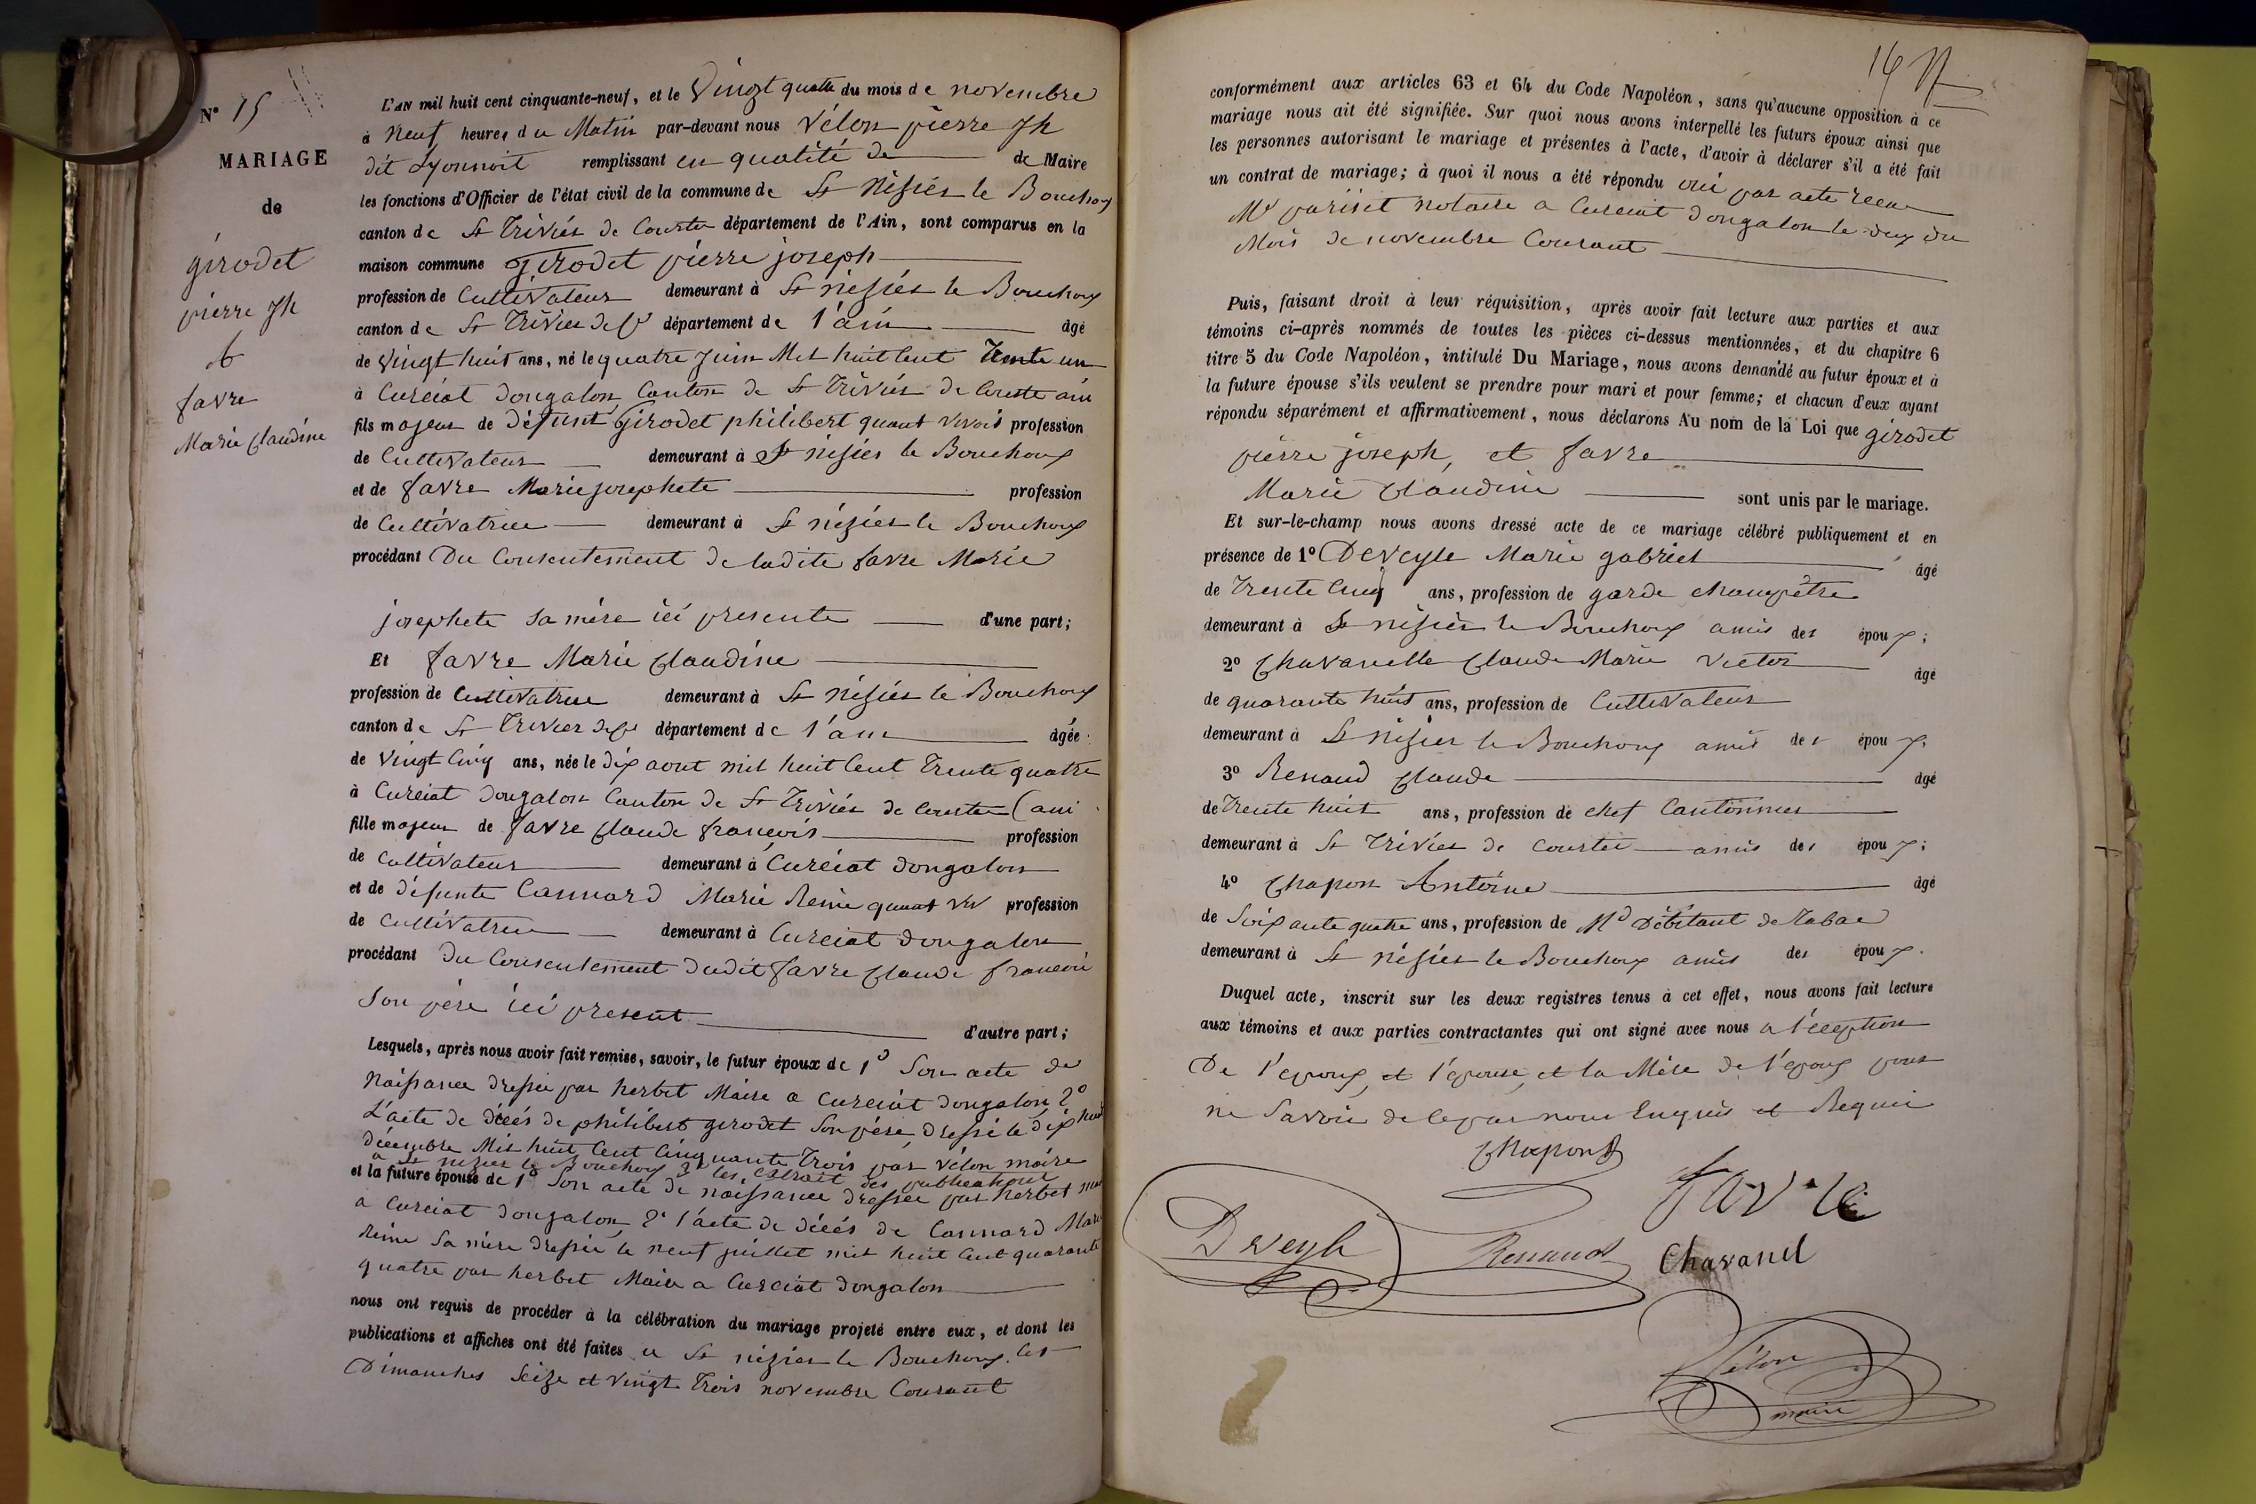 N° 15
MARIAGE
de
girodet
pierre Jh
&
favre
Marie Claudine
L'AN mil huit cent cinquante-neuf, et le Vingt quatre du mois de novembre
à Neuf heures du Matin par-devant nous Vélon pierre Jh
dit Lyonnoit remplissant en qualité de de Maire
les fonctions d'Officier de l'état civil de la commune de St Nisiér le Bouchoux
canton de St Triviér de Courtes département de l'Ain, sont comparus en la
maison commune Girodet pierre joseph
profession de Cultivateur demeurant à St nisiér le Bouchoux
canton de St Trivier de Cs département de l'ain âgé
de Vingt huit ans, né le quatre Juin Mil huit Cent Trente un
à Curciat dongalon Canton de St Triviér de Courte ain
fils majeur de défunt Girodet philibert quant vivoit profession
de Cultivateur demeurant à St nisiér le Bouchoux
et de favre Marie josephete profession
de Cultivatrice demeurant à St niziér le Bouchoux
procédant Du Consentement de ladite favre Marie
josephete sa mére ici presente d'une part;
Et favre Marie Claudine
profession de Cultivatrice demeurant à St Niziér le Bouchoux
canton de St Trivier de Cs département de l'ain âgée
de Vingt Cinq ans, née le Dix aout mil huit Cent Trente quatre
à Curciat dongalon Canton de St Triviér de Courtes (ain
fille majeur de favre Claude francois profession
de Cultivateur demeurant à Curciat dongalon
et de défunte Cannard Marie Reine quant viv profession
de Cultivatrice demeurant à Curciat dongalon
procédant du Consentement dudit favre Claude francois
Son pére ici present d'autre part;
Lesquels, après nous avoir fait remise, savoir, le futur époux de 1° Son acte de
Naissance dressée par herbet Maire a Curciat dongalon 2°
L'acte de décés de philibert girodet Son pére, dressé le dix huit
décembre Mil huit Cent Cinquante Trois par Vélon maire
a St nizier le Bouchoux 3° les extrait des publications
et la future épouse de 1° Son acte de naissance dressée par herbet mai
a Curciat dongalon 2° l'acte de décés de Cannard Marie
Reine Sa mére dressée le neuf juillet mil huit Cent quarante
quatre par herbet Maire a Curciat dongalon
nous ont requis de procéder à la célébration du mariage projeté entre eux, et dont les
publications et affiches ont été faites a St niziér le Bouchoux les
Dimanches Seize et Vingt Trois novembre Courant
conformément aux articles 63 et 64 du Code Napoléon, sans qu'aucune opposition à ce
mariage nous ait été signifiée. Sur quoi nous avons interpellé les futurs époux ainsi que
les personnes autorisant le mariage et présentes à l'acte, d'avoir à déclarer s'il a été fait
un contrat de mariage; à quoi il nous a été répondu oui par acte recu
Me pariset notaire a Curciat dongalon le deux du
Mois de novembre Courant
Puis, faisant droit à leur réquisition, après avoir fait lecture aux parties et aux
témoins ci-après nommés de toutes les pièces ci-dessus mentionnées, et du chapitre 6
titre 5 du Code Napoléon, intitulé Du Mariage, nous avons demandé au futur époux et à
la future épouse s'ils veulent se prendre pour mari et pour femme; et chacun d'eux ayant
répondu séparément et affirmativement, nous déclarons Au nom de la Loi que girodet
pierre joseph, et favre
Marie Claudine sont unis par le mariage.
Et sur-le-champ nous avons dressé acte de ce mariage célébré publiquement et en
présence de 1° Deveyle Marie gabriel âgé
de Trente Cinq ans, profession de garde champêtre
demeurant à St nisiér le Bouchoux amis des époux;
2° Chavanelle Claude Marie Victor âgé
de quarante huit ans, profession de Cultivateur
demeurant à St nisier le Bouchoux amis des époux;
3° Renaud Claude âgé
de Trente huit ans, profession de chef Cantonnier
demeurant à St Triviér de Courtes amis des époux;
4° Chapon Antoine âgé
de Soixante quatre ans, profession de Md Débitant de Tabac
demeurant à St nésiér le Bouchoux amis des époux.
Duquel acte, inscrit sur les deux registres tenus à cet effet, nous avons fait lecture
aux témoins et aux parties contractantes qui ont signé avec nous a l'éception
De l'epoux, et l'épouse, et la Mére de l'epoux pour
ne Savoir de ce par nous Enquis et Requis
Chapon
Favre
Deveyle
Renaud
Chavanel
Vélon
maire